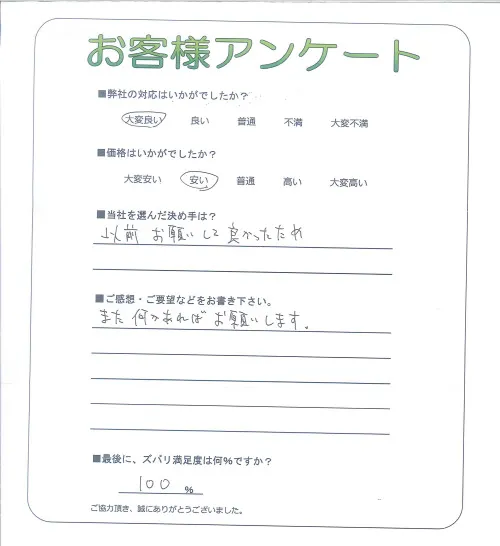 お客様アンケート
■弊社の対応はいかがでしたか?
大変良い 良い 普通 不満 大変不満
■価格はいかがでしたか?
大変安い 安い 普通 高い 大変高い
■当社を選んだ決め手は?
以前お願いして良かったため
■ご感想・ご要望などをお書き下さい。
また何かあればお願いします。
■最後に、ズバリ満足度は何%ですか?
100 %
ご協力頂き、誠にありがとうございました。